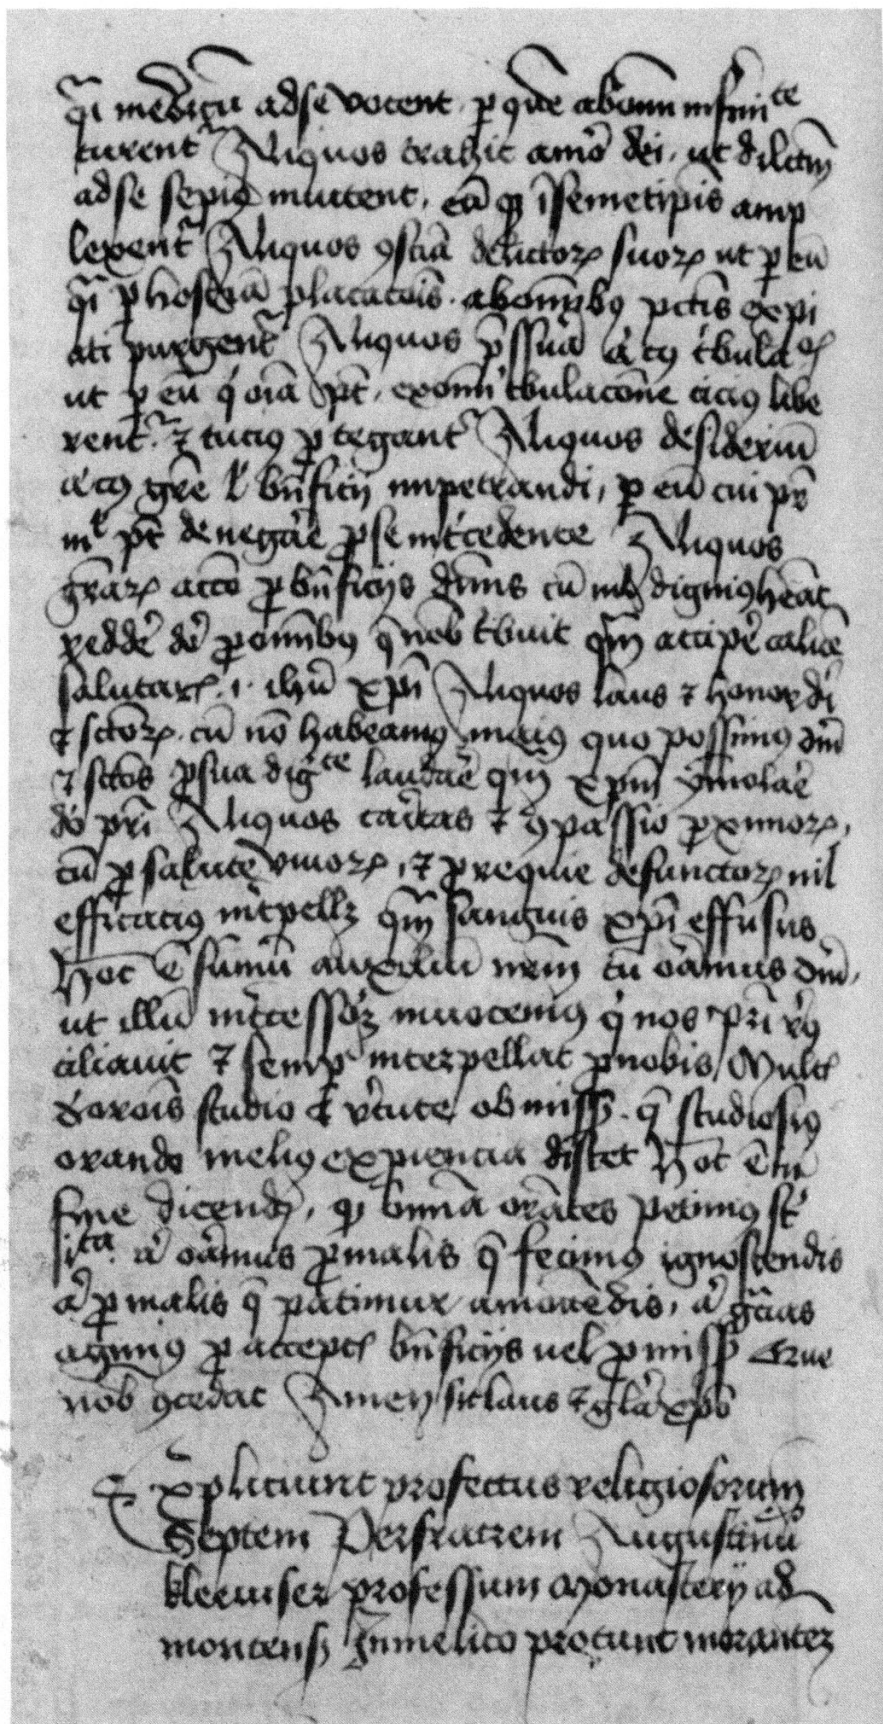 qͥ medicū ad se vocent ꝑ quē ab om̄i infirmi^te
curentᷣ Aliquos trahit amor dei ut dilc̄m
ad se sepiꝰ inuitent, eū qꝫ ī semetip̄is amp
lexentᷣ Aliquos ꝯsciā delictoꝝ suoꝝ ut ꝑ eū
qͥ ꝓ hostiā placacōis ab om̄ibꝰ pctīs expi
ati purgentᷣ Aliquos p̄ssura alicꝰ tͥbula^ois
ut ꝑ eū qͥ oīa pt̄, ex om̄i tͥbulacōne ciciꝰ libe
rentᷣ ⁊ tuciꝰ ꝓtegantᷣ Aliquos desideriū
alicꝰ grē l̕ bn̄ficij impetrandi, ꝑ eū cui pr̄
nͥl pt̄ denegare ꝓ se int̕cedente Aliquos
gr̄aꝝ accō ꝓ bn̄ficijs diuinis cū nil digniꝰ heāt
redde̕ deo ꝓ om̄ibꝰ q̄ nob̄ tͥbuit qm̄ accipe̕ calicē
salutarꝭ .i. ihū xp̄i Aliquos laus ⁊ honor dei
⁊ sctōꝝ, cū nō habeamꝰ maiꝰ quo possimꝰ dm̄
⁊ sctōs ꝓ sua dig^te laudare qm̄ xp̄m ymolare
deo pr̄i Aliquos caritas ⁊ ꝯpassio ꝓximoꝝ,
cū ꝓ salute viuoꝝ, ⁊ ꝓ requie defunctoꝝ nil
efficaciꝰ int̕pellꝫ qm̄ sanguis xp̄i effusus
Hoc ē sūmū auxiliū nrm̄ cū oramus dm̄,
ut illū int̕cessorē inuocemꝰ qͥ nos pr̄i recꝰ
ciliauit ⁊ semꝑ interpellat ꝓ nobis Multꝭ
de orōis studio ⁊ vͥtute ob missꝭ q̄ studiosiꝰ
orando meliꝰ exꝑiencia discet Hoc ē in
fine dicendū, qꝫ omīa orātes petimꝰ
aut oramus ꝓ malis q̄ fecimꝰ ignoscendis
aut ꝓ malis q̄ patimur amouēdis, aut gr̄cias
agimꝰ ꝓ acceptꝭ bn̄ficijs uel ꝓmissꝭ
nob̄ ꝯcedat Amen sit laus ⁊ gla xp̄o
Expliciunt profectus religiosorum
Septem Per fratrem Augustinū
kleeuiser professum Monasterij ad
montensꝭ In melico protunc morantem